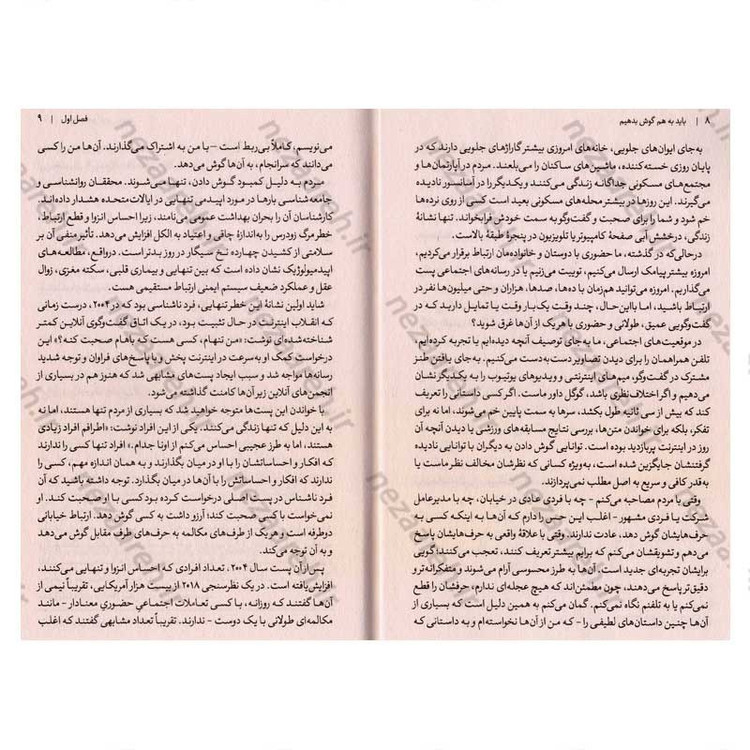 ۸ | باید به هم گوش بدهیم
به‌جای ایوان‌های جلویی، خانه‌های امروزی بیشتر گاراژهای جلویی دارند که در
پایان روزی خسته‌کننده، ماشین‌های ساکنان را می‌بلعند. مردم در آپارتمان‌ها و
مجتمع‌های مسکونی جداگانه زندگی می‌کنند و یکدیگر را در آسانسور نادیده
می‌گیرند. این روزها در بیشتر محله‌های مسکونی بعید است کسی از روی نرده‌ها
خم شود و شما را برای صحبت و گفت‌وگو به سمت خودش فرابخواند. تنها نشانهٔ
زندگی، درخشش آبی صفحهٔ کامپیوتر یا تلویزیون در پنجرهٔ طبقهٔ بالاست.
درحالی‌که در گذشته، ما حضوری با دوستان و خانواده‌مان ارتباط برقرار می‌کردیم،
امروزه بیشتر پیامک ارسال می‌کنیم، توییت می‌زنیم یا در رسانه‌های اجتماعی پست
می‌گذاریم. امروزه می‌توانید هم‌زمان با ده‌ها، صدها، هزاران و حتی میلیون‌ها نفر در
ارتباط باشید، اما بااین‌حال، چند وقت یک‌بار وقت یا تمایل دارید که در
گفت‌وگویی عمیق، طولانی و حضوری با هریک از آن‌ها غرق شوید؟
در موقعیت‌های اجتماعی، ما به‌جای توصیف آنچه دیده‌ایم یا تجربه کرده‌ایم
تلفن همراهمان را برای دیدن تصاویر دست‌به‌دست می‌کنیم. به‌جای یافتن طنز
مشترک در گفت‌وگو، میم های اینترنتی و ویدیوهای یوتیوب را به یکدیگر نشان
می‌دهیم و اگر اختلاف نظری باشد، گوگل داور ماست. اگر کسی داستانی را تعریف
کند که بیش از سی ثانیه طول بکشد، سرها به سمت پایین خم می‌شوند، اما نه برای
تفکر، بلکه برای خواندن متن‌ها، بررسی نتایج مسابقه‌های ورزشی یا دیدن آنچه آن
روز در اینترنت پربازدید بوده است. توانایی گوش دادن به دیگران با توانایی نادیده
گرفتنشان جایگزین شده است، به‌ویژه کسانی که نظرشان مخالف نظر ماست یا
به‌قدر کافی و سریع به اصل مطلب نمی‌پردازند.
وقتی با مردم مصاحبه می‌کنم - چه با فردی عادی در خیابان، چه با مدیرعامل
شرکت یا فردی مشهور - اغلب این حس را دارم که آن‌ها به اینکه کسی به
حرف‌هایشان گوش دهد، عادت ندارند. وقتی با علاقهٔ واقعی به حرف‌هایشان پاسخ
می‌دهم و تشویقشان می‌کنم که برایم بیشتر تعریف کنند، تعجب می‌کنند؛ گویی
برایشان تجربه‌ای جدید است. آن‌ها به طرز محسوسی آرام می‌شوند و متفکرانه‌تر و
دقیق‌تر پاسخ می‌دهند، چون مطمئن‌اند که هیچ عجله‌ای ندارم، حرفشان را قطع
نمی‌کنم یا به تلفنم نگاه نمی‌کنم. گمان می‌کنم به همین دلیل است که بسیاری از
آن‌ها چنین داستان‌های لطیفی را - که من از آن‌ها نخواسته‌ام و به داستانی که
فصل اول | ۹
می‌نویسم، کاملاً بی‌ربط است - با من به اشتراک می‌گذارند. آن‌ها من را کسی
می‌دانند که سرانجام، به آن‌ها گوش می‌دهد.
مردم به دلیل کمبود گوش دادن، تنها می‌شوند. محققان روانشناسی و
جامعه‌شناسی بارها در مورد اپیدمی تنهایی در ایالات متحده هشدار داده‌اند.
کارشناسان آن را بحران بهداشت عمومی می‌نامند، زیرا احساس انزوا و قطع ارتباط،
خطر مرگ زودرس را به‌اندازهٔ چاقی و اعتیاد به الکل افزایش می‌دهد. تأثیر منفی آن بر
سلامتی از کشیدن چهارده نخ سیگار در روز بدتر است. درواقع، مطالعه‌های
اپیدمیولوژیک نشان داده است که بین تنهایی و بیماری قلبی، سکته مغزی، زوال
عقل و عملکرد ضعیف سیستم ایمنی ارتباط مستقیمی هست.
شاید اولین نشانهٔ این خطر تنهایی، فرد ناشناسی بود که در ۲۰۰۴، درست زمانی
که انقلاب اینترنت در حال تثبیت بود، در یک اتاق گفت‌وگوی آنلاین کمتر
شناخته‌شده‌ای نوشت: «من تنهام، کسی هست که باهام صحبت کنه؟» این
درخواست کمک او به‌سرعت در اینترنت پخش و با پاسخ‌های فراوان و توجه شدید
رسانه‌ها مواجه شد و سبب ایجاد پست‌های مشابهی شد که هنوز هم در بسیاری از
انجمن‌های آنلاین زیر آن‌ها کامنت گذاشته می‌شود.
با خواندن این پست‌ها متوجه خواهید شد که بسیاری از مردم تنها هستند، اما نه
به این دلیل که تنها زندگی می‌کنند. یکی از این افراد نوشت: «اطرافم افراد زیادی
هستند، اما به طرز عجیبی احساس می‌کنم از اونا جدام.» افراد تنها کسی را ندارند
که افکار و احساساتشان را با او در میان بگذارند و به همان اندازه مهم، کسی را
که افکار و احساساتش را با آن‌ها در میان بگذارد. توجه داشته باشید که آن
فرد ناشناس در پست اصلی درخواست کرده بود کسی با او صحبت کند. او
نمی‌خواست با کسی صحبت کند؛ آرزو داشت به کسی گوش دهد. ارتباط خیابانی
دوطرفه است و هریک از طرف‌های مکالمه به حرف‌های طرف مقابل گوش می‌دهد
و به آن توجه می‌کند.
پس از آن پست سال ۲۰۰۴، تعداد افرادی که احساس انزوا و تنهایی می‌کنند،
افزایش یافته است. در یک نظرسنجی ۲۰۱۸ از بیست هزار آمریکایی، تقریباً نیمی از
آن‌ها گفتند که روزانه، با کسی تعاملات اجتماعی حضوریِ معنادار - مانند
مکالمه‌ای طولانی با یک دوست - ندارند. تقریباً تعداد مشابهی گفتند که اغلب